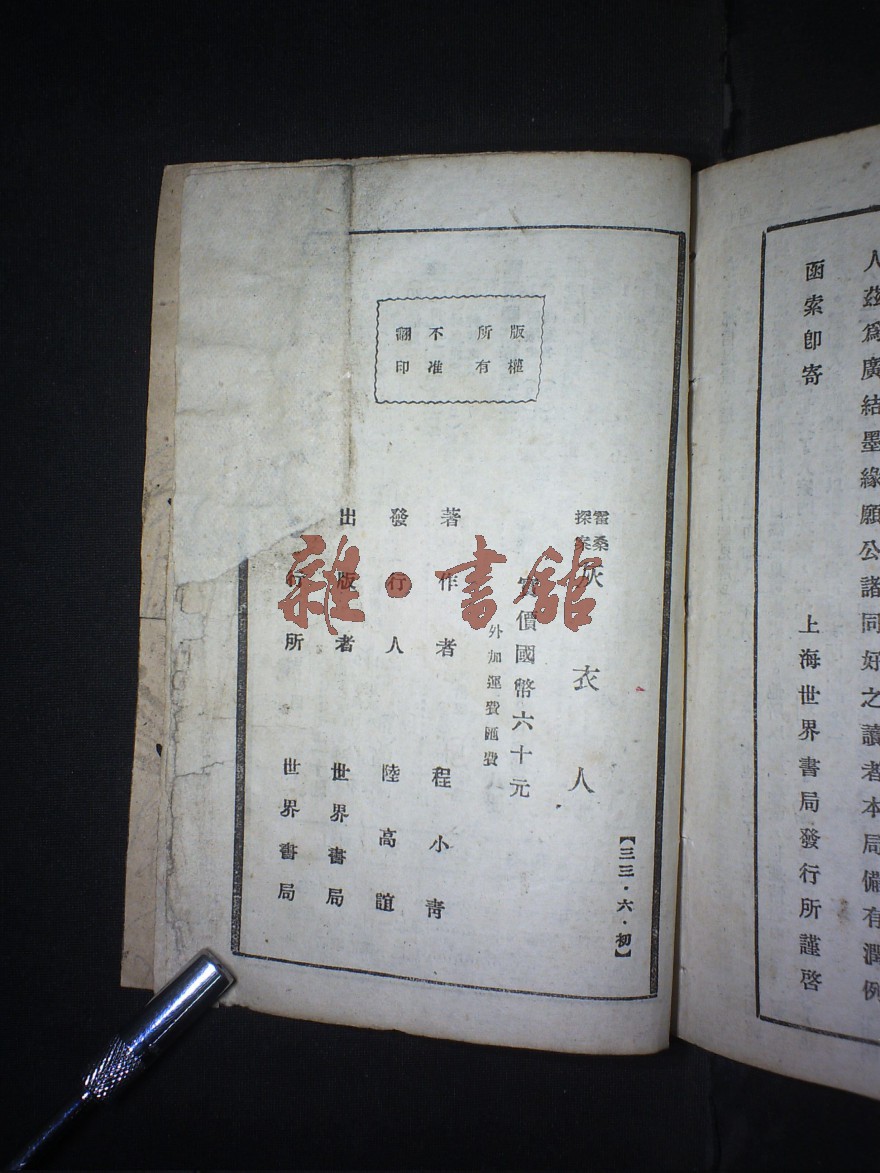 人茲爲廣結墨緣願公諸同好之讀者本局備有潤例
函索卽寄
上海世界書局發行所謹啓
版權
所有
不准
翻印
【三三·六·初】
霍桑
探案
灰衣人
實價國幣六十元
外加運費匯費
著作者 程小青
發行人 陸高誼
出版者 世界書局
行所 世界書局
雜·書館